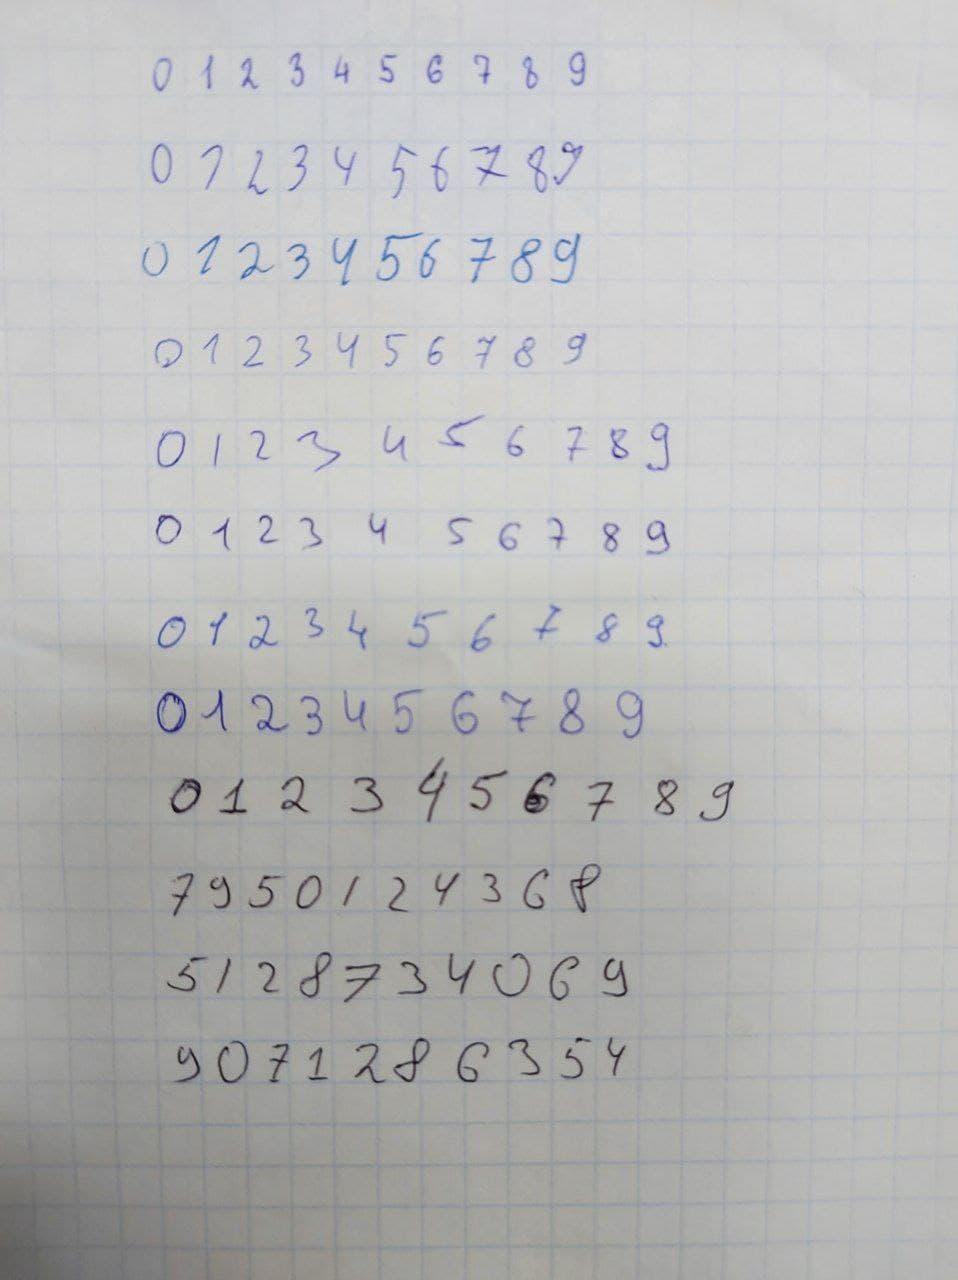 0 1 2 3 4 5 6 7 8 9
0 1 2 3 4 5 6 7 8 9
0 1 2 3 4 5 6 7 8 9
0 1 2 3 4 5 6 7 8 9
0 1 2 3 4 5 6 7 8 9
0 1 2 3 4 5 6 7 8 9
0 1 2 3 4 5 6 7 8 9
0 1 2 3 4 5 6 7 8 9
0 1 2 3 4 5 6 7 8 9
7 9 5 0 1 2 4 3 6 8
5 1 2 8 7 3 4 0 6 9
9 0 7 1 2 8 6 3 5 4